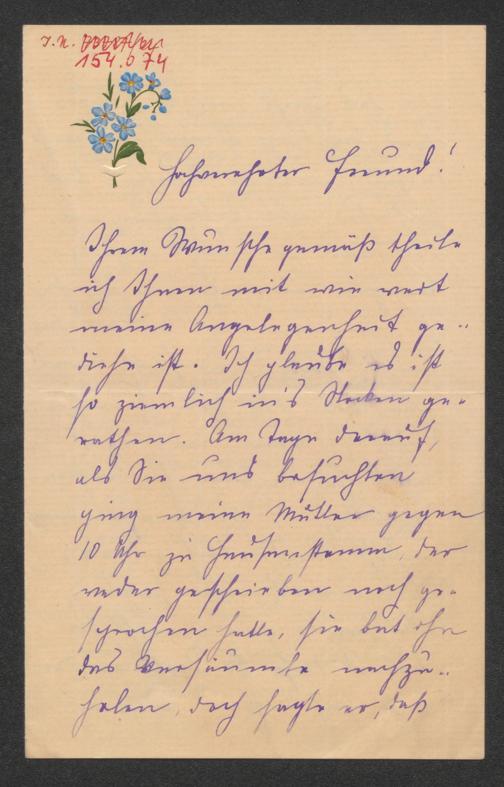 I. N.
154.074
Hochverehrter Freund!
Ihrem Wunsche gemäß theile
ich Ihnen mit wie weit
meine Angelegenheit ge-
diehn ist. Ich glaube es ist
so ziemlich in's Stocken ge-
rathen. Am Tage darauf,
als Sie uns besuchten
ging meine Mutter gegen
10 Uhr zu der
weder geschrieben noch ge-
sprochen hatte, sie bat ihn
das Versäumte nachzu-
holen, doch sagte er, daß